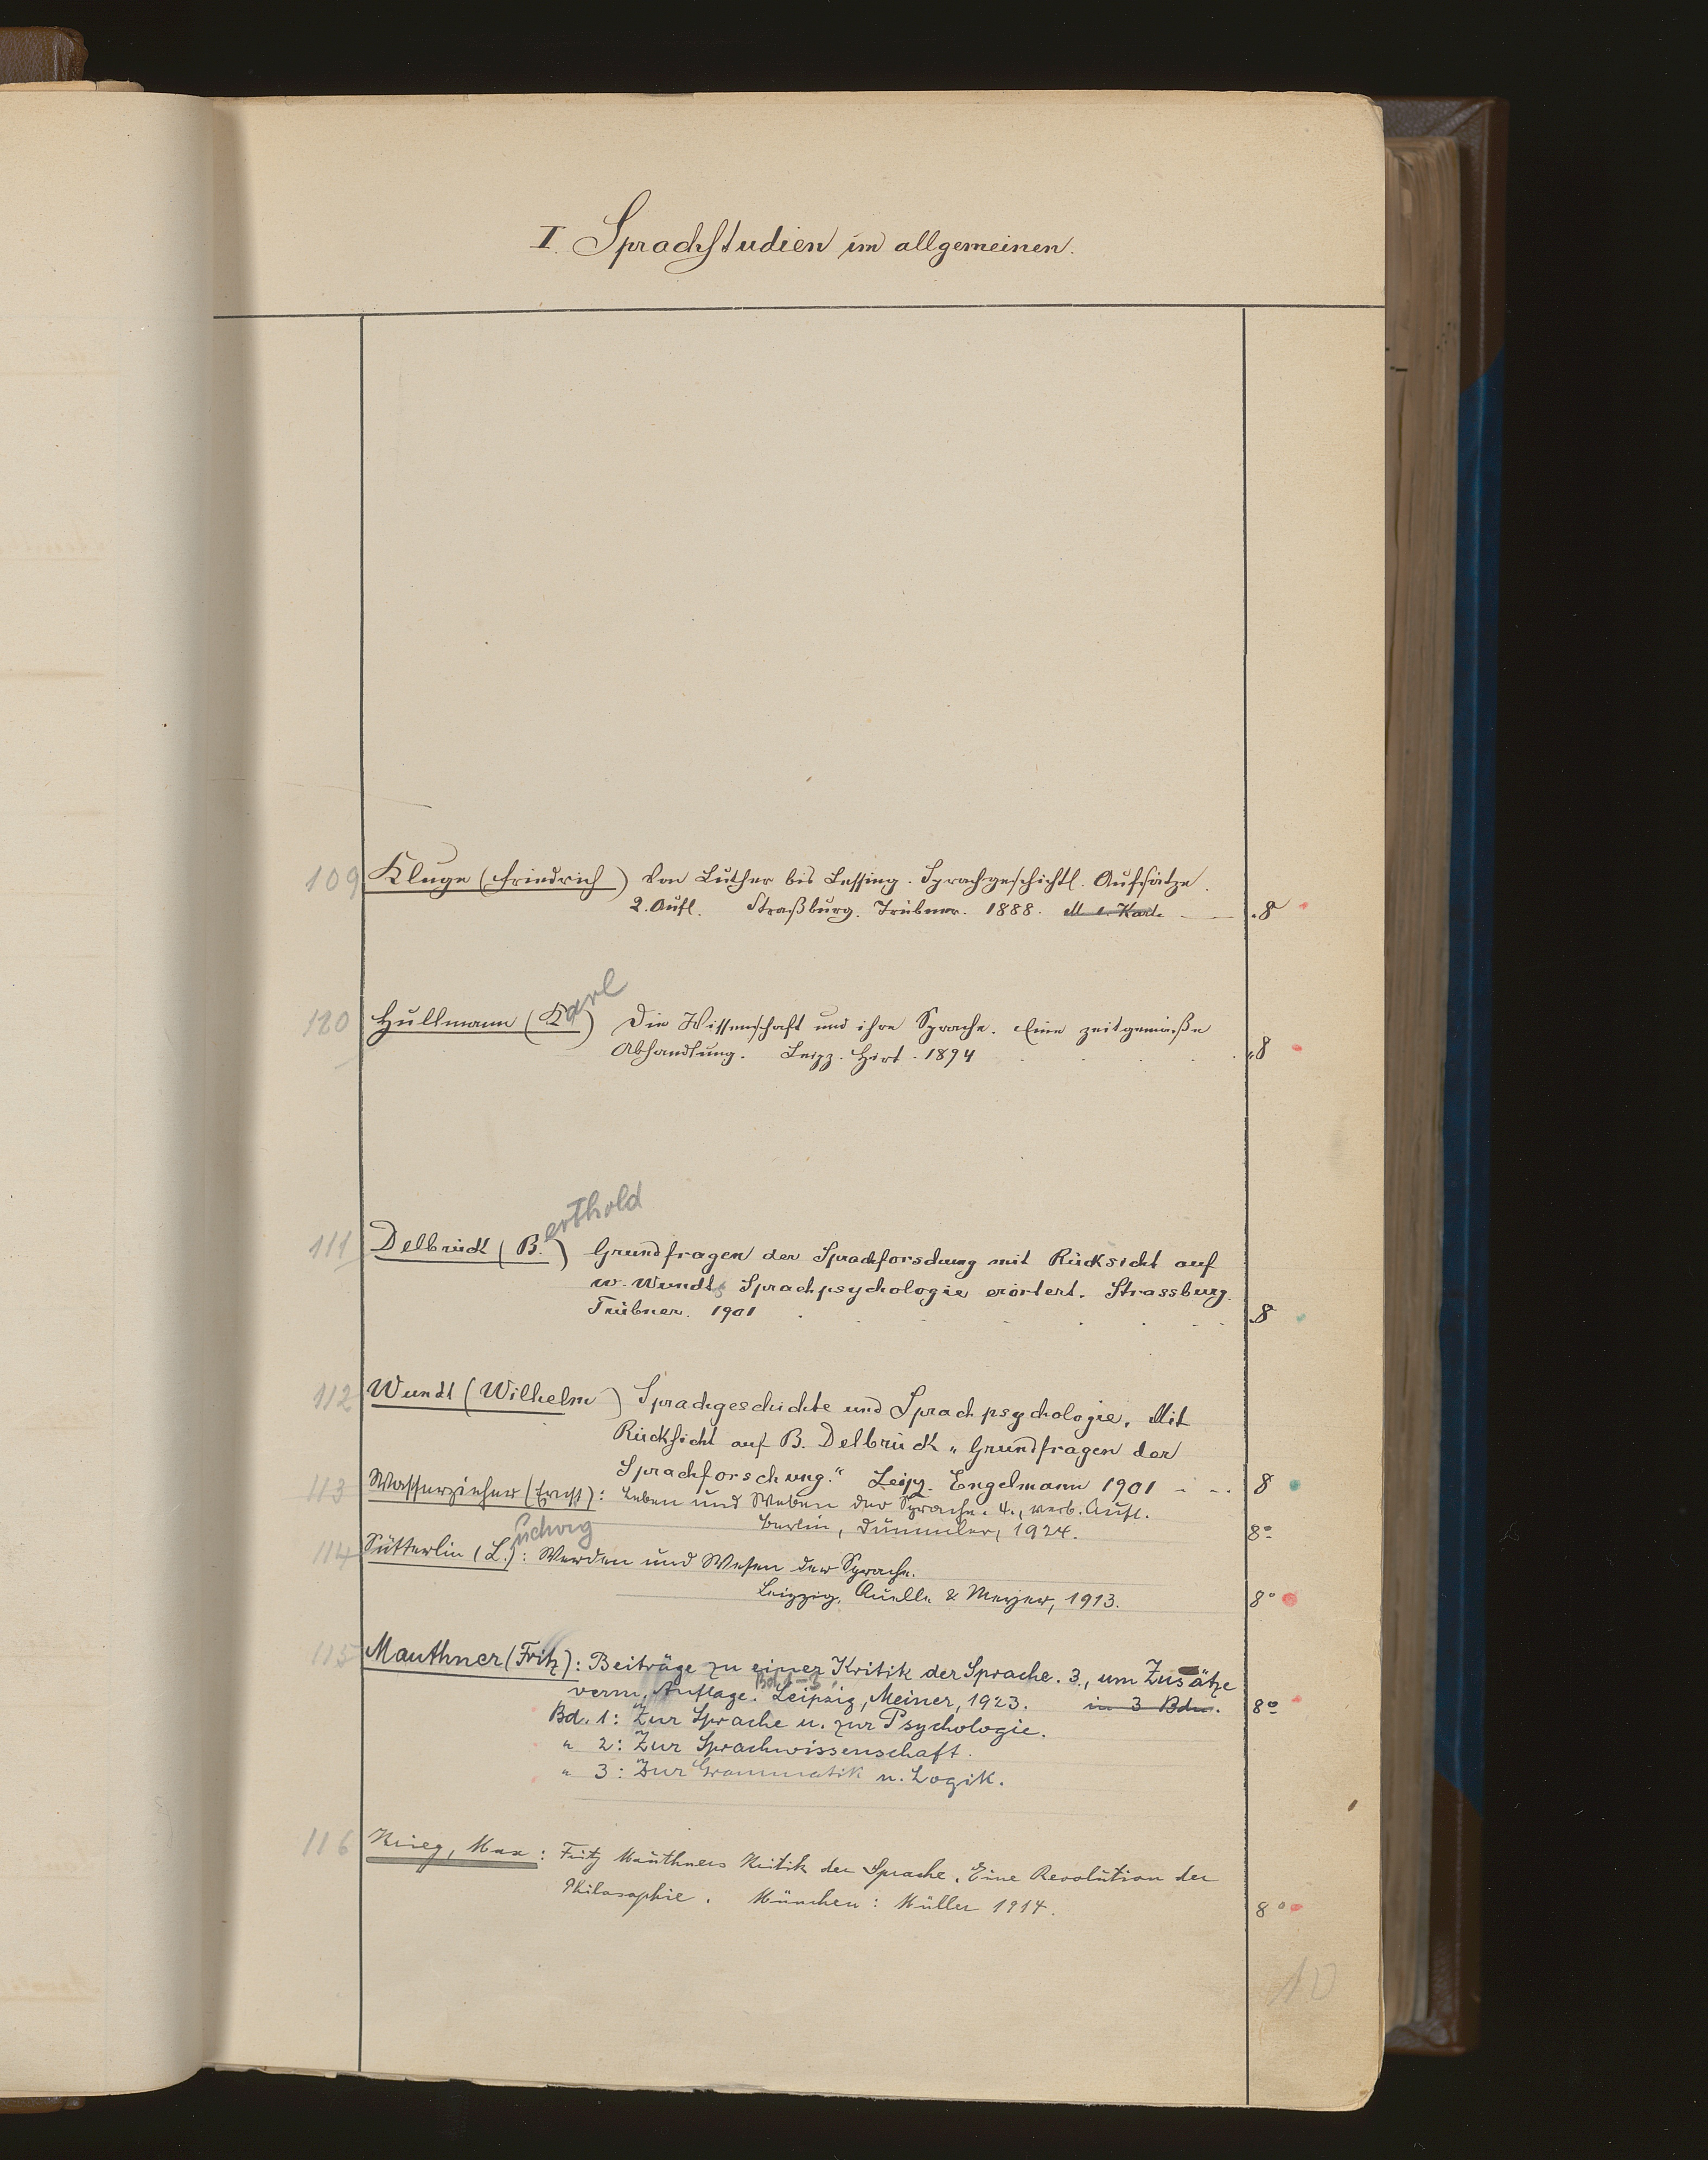 I. Sprachstudien im allgemeinen.
109 Kluge (Friedrich) Von Luther bis Lessing. Sprachgeschichtl. Aufsätze.
2. Aufl. Straßburg. Trübner. 1888. M 1. Karte 8
110 Hüllmann (Karl) Die Wissenschaft und ihre Sprache. Eine zeitgemäße
Abhandlung. Leipz. Hirt. 1894 8
111 Delbrück (B.erthold) Grundfragen der Sprachforschung mit Rücksicht auf
W. Wundts Sprachpsychologie erörtert. Strassburg.
Trübner. 1901 8
112 Wundt (Wilhelm) Sprachgeschichte und Sprachpsychologie. Mit
Rücksicht auf B. Delbrück „Grundfragen der
Sprachforschung.“ Leipz. Engelmann 1901 8
113 Wasserzieher (Ernst): Leben und Weben der Sprache. 4., verb. Aufl.
Berlin, Dümmler, 1924. 8°
114 Sütterlin (L.udwig): Werden und Wesen der Sprache.
Leipzig, Quelle & Meyer, 1913. 8°
115 Mauthner (Fritz): Beiträge zu einer Kritik der Sprache. 3., um Zusätze
verm. Auflage. Bd. 1-3. Leipzig, Meiner, 1923. in 3 Bdn. 8°
Bd. 1: Zur Sprache u. zur Psychologie.
" 2: Zur Sprachwissenschaft.
" 3: Zur Grammatik u. Logik.
116 Krieg, Max: Fritz Mauthners Kritik der Sprache. Eine Revolution der
Philosophie. München: Müller 1914. 8°
10